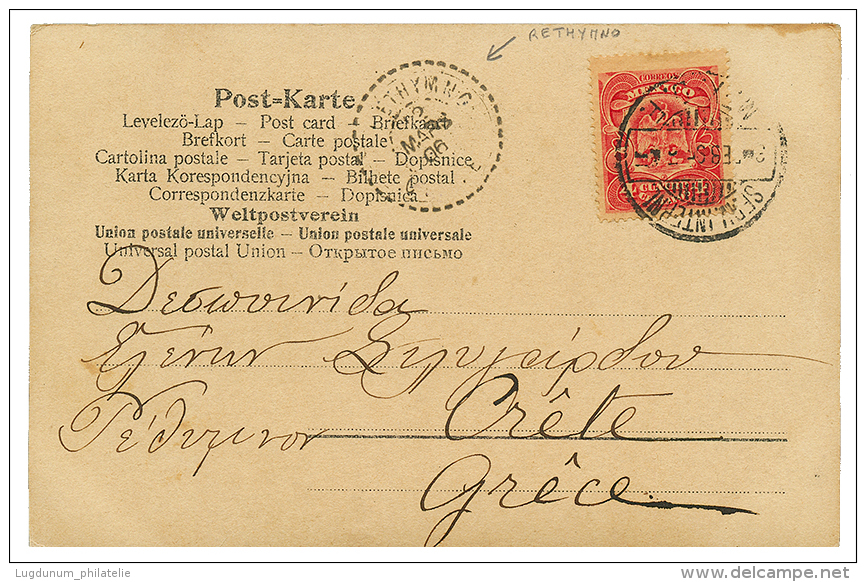 RETHYMNO
CORREOS
MEXICO
RETHYMNO
MAR
06
Post-Karte
Levelező-Lap – Post card – Briefkaart
Brefkort – Carte postale
Cartolina postale – Tarjeta postal – Dopisnice
Karta Korespondencyjna – Bilhete postal
Correspondenzkarte – Dopisnica
Weltpostverein
Union postale universelle – Union postale universale
Universal postal Union – Открытое письмо
Δεσποινίδα
Ἑλένην
Ρέθυμνον Crête
Grèce
Lugdunum_philatelie
delcampe.net